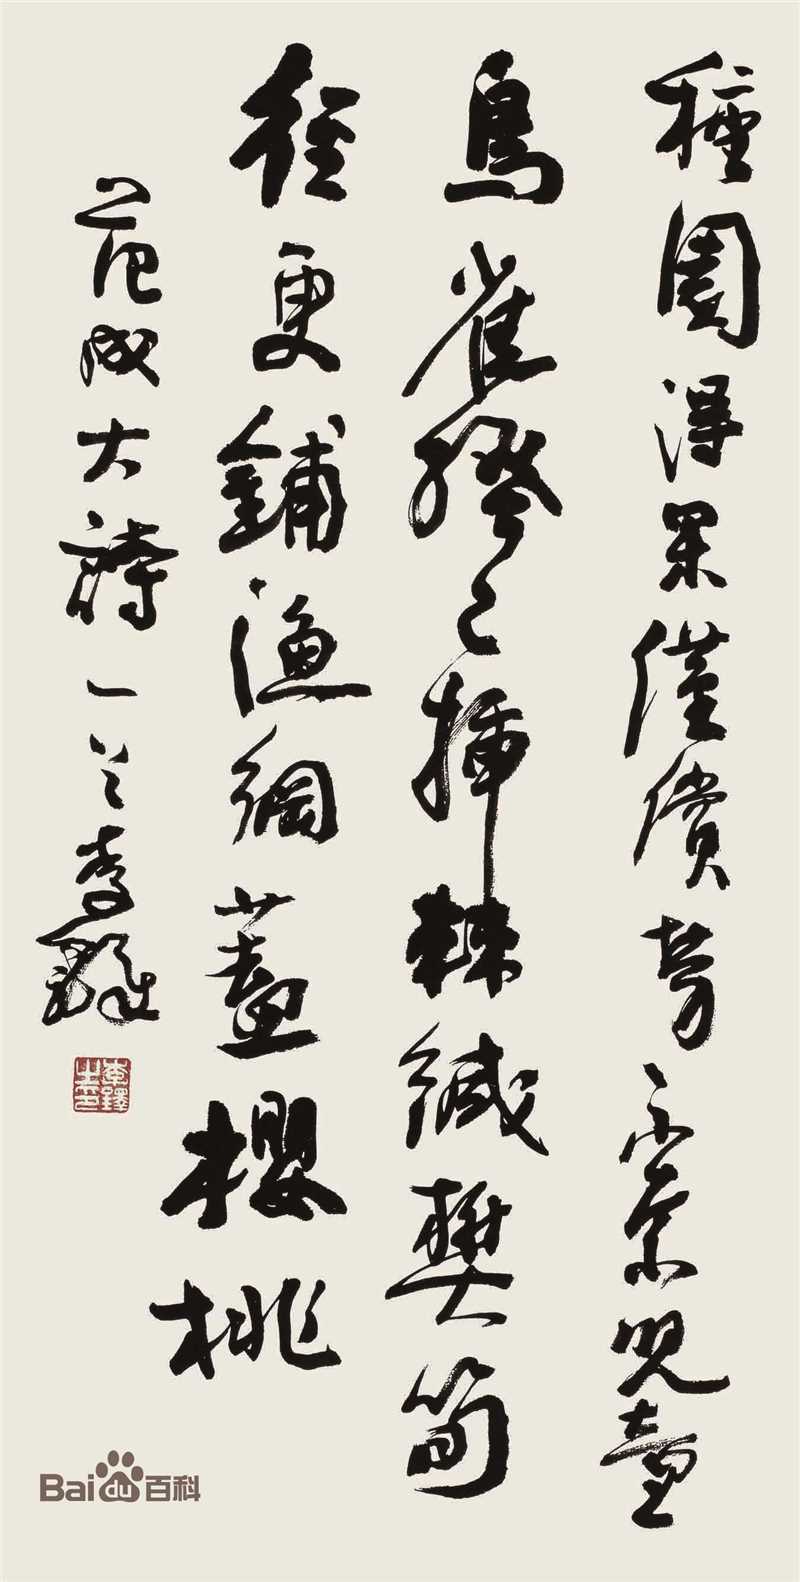 種園得果僅償勞不柰兒童
鳥雀搔已插棘緘樊筍
徑更鋪漁網蓋櫻桃
范成大詩一首李鐸
李鐸之印
Bai du 百科